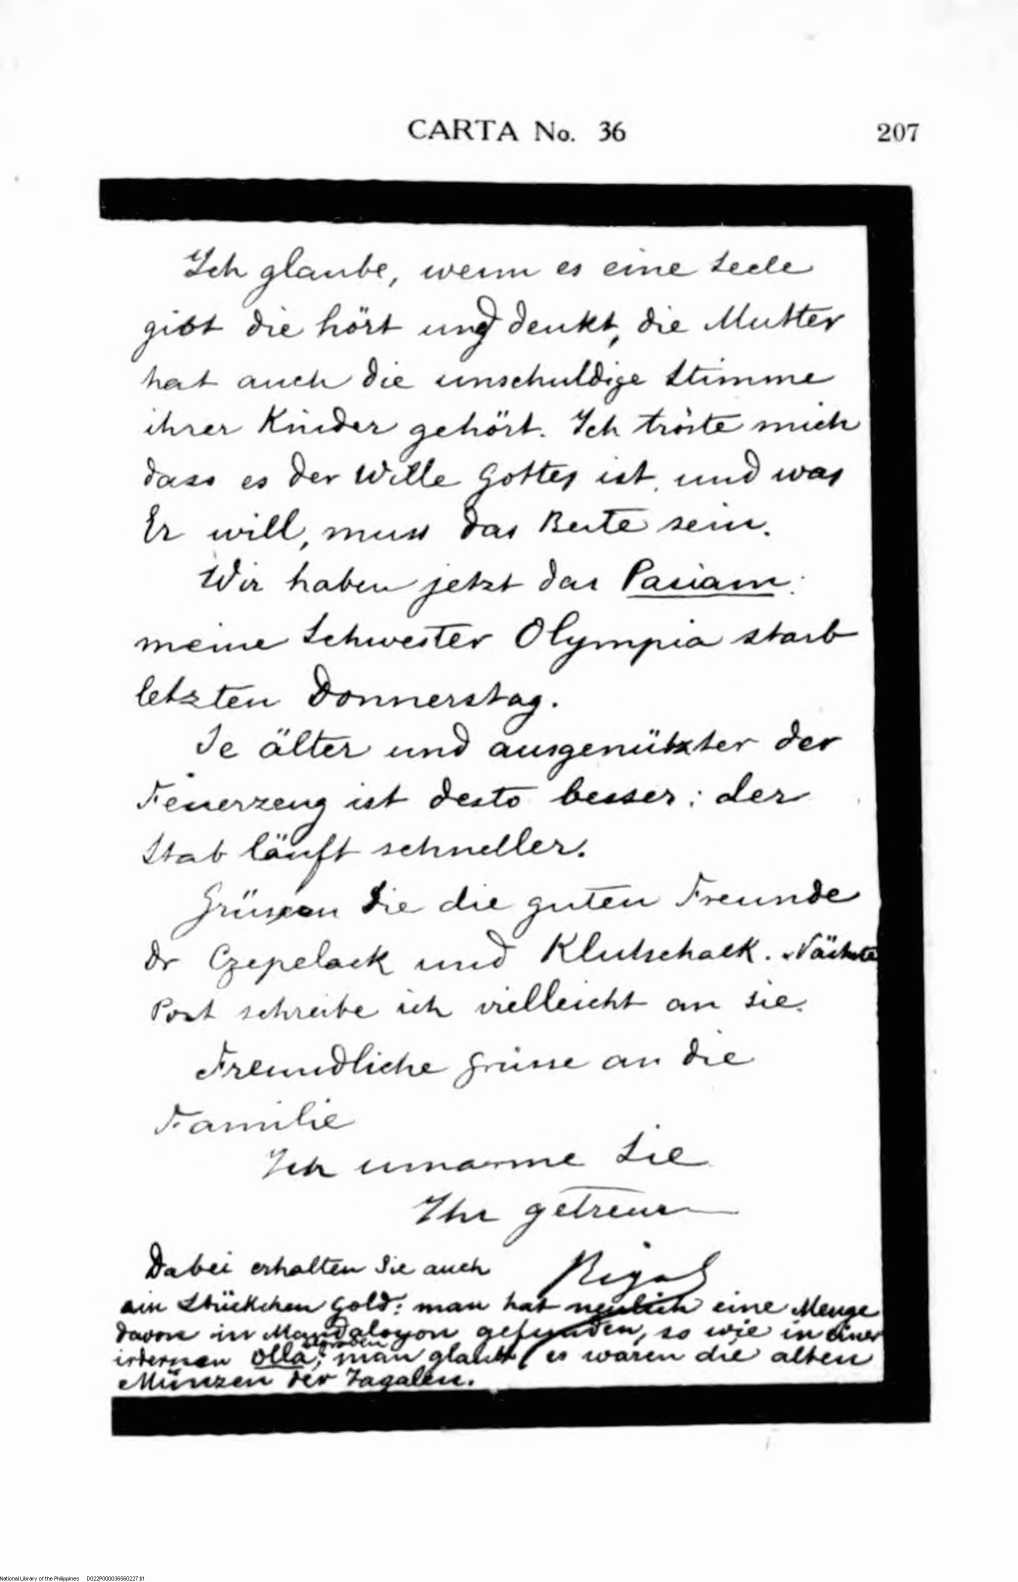 CARTA No. 36 207
Ich glaube, wenn es eine Seele
gibt die hört und denkt, die Mutter
hat auch die unschuldige Stimme
ihrer Kinder gehört. Ich tröste mich
dass es der Wille Gottes ist, und was
Er will, muss das Beste sein.
Wir haben jetzt das Pasiam:
meine Schwester Olympia starb
letzten Donnerstag.
Je älter und ausgenützter der
Feuerzeug ist desto besser: der
Stab läuft schneller.
Grüssen Sie die guten Freunde
Dr Czepelack und Klutschack. Nächste
Post schreibe ich vielleicht an sie.
Freundliche Grüsse an die
Familie
Ich umarme Sie
Ihr getreuer
Rizal
Dabei erhalten Sie auch
ein Stückchen Gold: man hat neulich eine Menge
davon in Mandaloyon gefunden, so wie in einer
irdernen olla; man glaubt es waren die alten
Münzen der Tagalen.
National Library of the Philippines